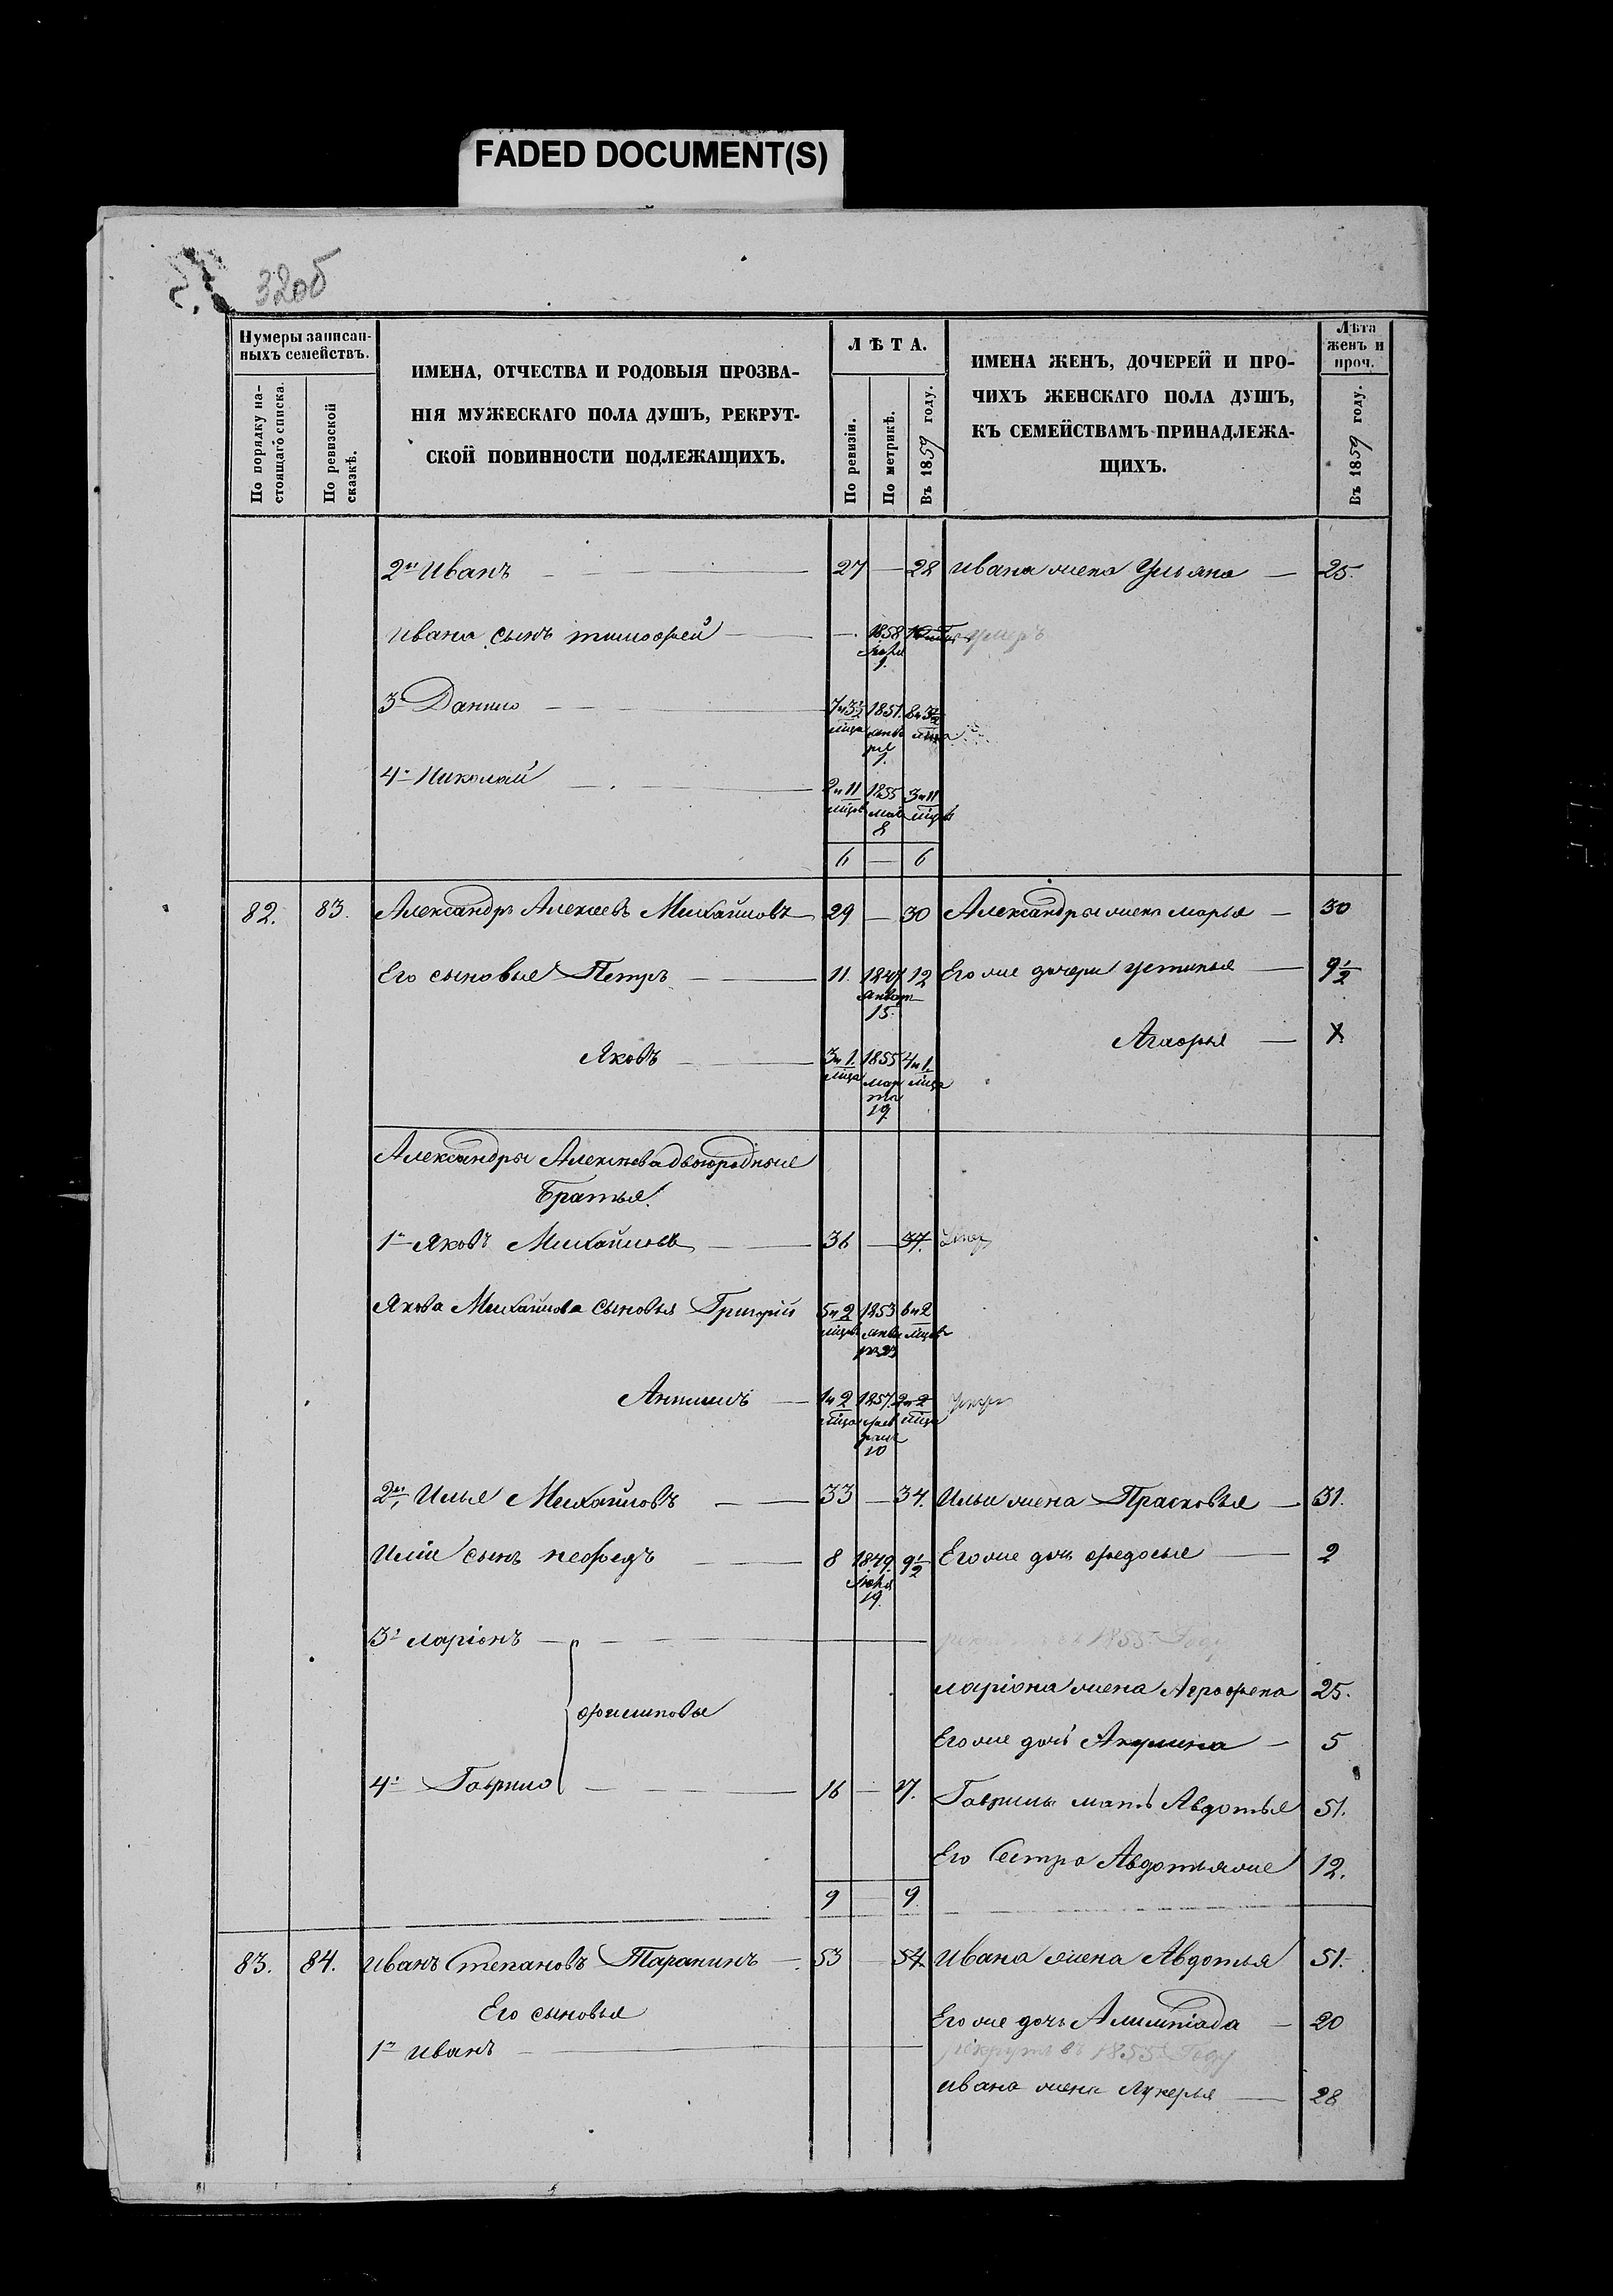 FADED DOCUMENT(S)
32об
Нумеры записан-
ныхъ семействъ.
По порядку на-
стоящаго списка.
По ревизской
сказкѣ.
ИМЕНА, ОТЧЕСТВА И РОДОВЫЯ ПРОЗВА-
НІЯ МУЖЕСКАГО ПОЛА ДУШЪ, РЕКРУТ-
СКОЙ ПОВИННОСТИ ПОДЛЕЖАЩИХЪ.
ЛѢТА.
По ревизіи.
По метрикѣ.
Въ 1859 году.
ИМЕНА ЖЕНЪ, ДОЧЕРЕЙ И ПРО-
ЧИХЪ ЖЕНСКАГО ПОЛА ДУШЪ,
КЪ СЕМЕЙСТВАМЪ ПРИНАДЛЕЖА-
ЩИХЪ.
Лѣта
женъ и
проч.
Въ 1859 году.
2й Иванъ — 27 — 28 Ивана жена Ульяна — 25.
Ивана сынъ тимофей — 1858 умеръ
1.
3й Данило — 7 и 3 1851. 8 и 3
мѣца янва мѣца
ря
1.
4й Николай — 2 и 11 1855 3 и 11
мѣцов мая мѣцов
8
6 — 6
82. 83. Александръ Алексеевъ Михайловъ 29 — 30 Александры жена марья — 30
Его сыновья Петръ — 11. 1847 12 Его же дочери устинья — 9 1/2
январ
15.
Яковъ — 3 и 1. 1855 4 и 1. —
мѣца мар мѣца
та
19
Александры Алексѣева двоюродные
Братья.
1й Яковъ Михайловъ — 36 — 37.
Якова Михайлова сыновья Григорій 5 и 2 1853 6 и 2
мѣцов янва мѣцов
ря 23
1 и 2 1857. 2 и 2 умеръ
мѣца фев мѣца
раля
10
2й Илья Михайловъ — 33 — 34. Ильи жена Прасковья — 31.
Иліи сынъ нефедъ — 8 1849. 9 1/2 Его же дочь федосья — 2
19.
3й ларіонъ — рекрутъ въ 1855 Году
ларіона жена Аграфена 25.
филиповы
Его же дочь Акулина — 5
4й Гаврило — 16 — 17. Гаврилы мать Авдотья 51.
Его Сестра Авдотья же 12.
9 — 9
83. 84. Иванъ Степановъ Таранинъ — 53 — 54 Ивана жена Авдотья 51.
Его сыновья
Его же дочь Алимпіада — 20
1й Иванъ — рекрутъ въ 1855 Году
Ивана жена Лукерья — 28